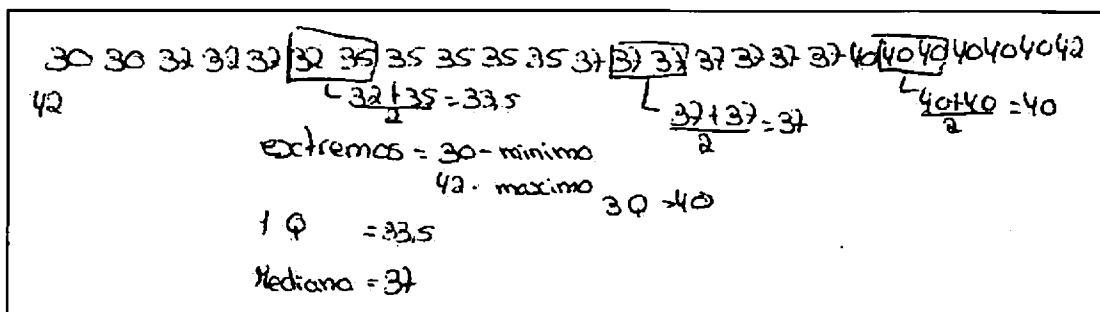 30 30 32 32 32 32 35 35 35 35 35 37 37 37 37 37 37 37 40 40 40 40 40 40 42
42
32+35/2 = 33,5
37+37/2 = 37
40+40/2 = 40
extremos = 30 - minimo
42 - maximo
3Q = 40
1Q = 33,5
Mediana = 37